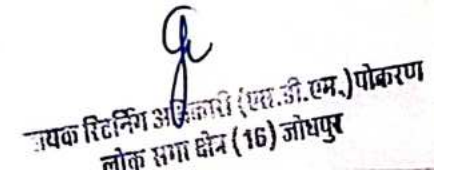 रिटर्निंग अधिकारी (एस.डी.एम.) पोकरण
लोक सभा क्षेत्र (16) जोधपुर